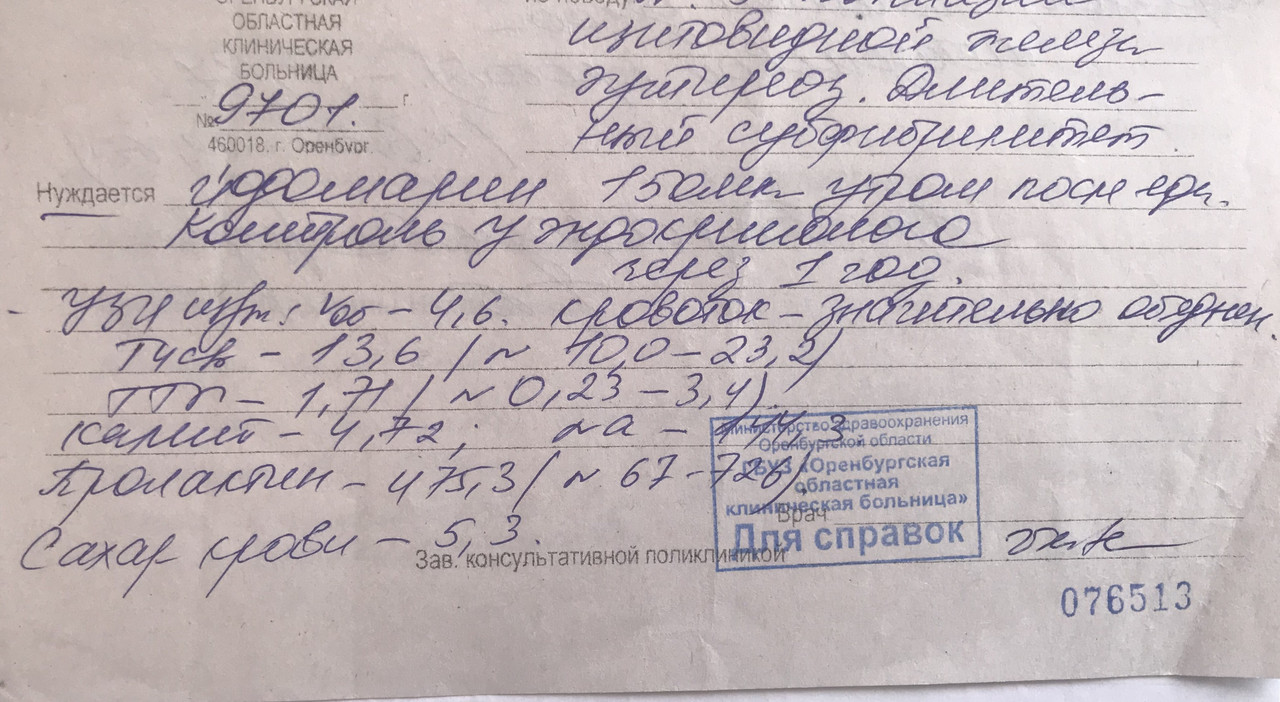 ОРЕНБУРГСКАЯ
ОБЛАСТНАЯ
КЛИНИЧЕСКАЯ
БОЛЬНИЦА
№ 9701. г
460018. г. Оренбург
по поводу
щитовидной железы
эутиреоз. Длитель-
ный субфебрилитет.
Нуждается йодомарин 150мкг утром после еды.
Контроль у эндокринолога
через 1 год.
УЗИ щит: Vоб - 4,6. кровоток - значительно обеднен.
Т4св - 13,6 (N 10,0-23,2)
ТТГ - 1,71 (N 0,23-3,4).
Калий - 4,72; Na - 144,3
Пролактин - 475,3 (N 67-726).
Сахар крови - 5,3.
Министерство здравоохранения
Оренбургской области
ГБУЗ «Оренбургская
областная
клиническая больница»
Для справок
Врач
Зав. консультативной поликлиникой
076513